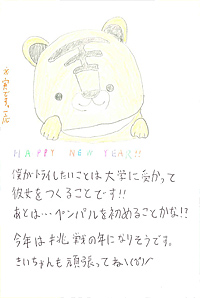 HAPPY NEW YEAR!!
僕がトライしたいことは大学に受かって
彼女をつくることです!!
あとは…ヤンバルを初めることかな!?
今年は挑戦の年になりそうです。
きいちゃんも頑張ってね